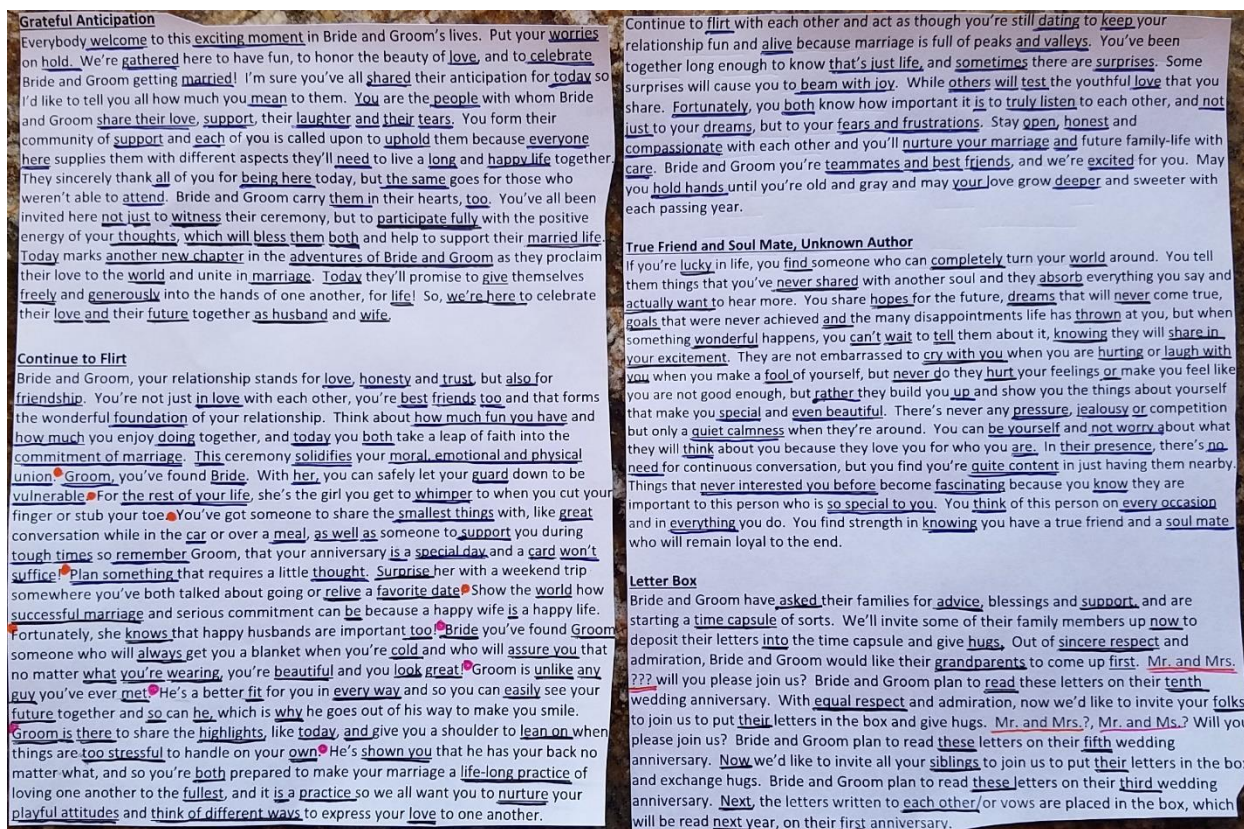 Grateful Anticipation
Everybody welcome to this exciting moment in Bride and Groom's lives. Put your worries
on hold. We're gathered here to have fun, to honor the beauty of love, and to celebrate
Bride and Groom getting married! I'm sure you've all shared their anticipation for today so
I'd like to tell you all how much you mean to them. You are the people with whom Bride
and Groom share their love, support, their laughter and their tears. You form their
community of support and each of you is called upon to uphold them because everyone
here supplies them with different aspects they'll need to live a long and happy life together.
They sincerely thank all of you for being here today, but the same goes for those who
weren't able to attend. Bride and Groom carry them in their hearts, too. You've all been
invited here not just to witness their ceremony, but to participate fully with the positive
energy of your thoughts, which will bless them both and help to support their married life.
Today marks another new chapter in the adventures of Bride and Groom as they proclaim
their love to the world and unite in marriage. Today they'll promise to give themselves
freely and generously into the hands of one another, for life! So, we're here to celebrate
their love and their future together as husband and wife.
Continue to Flirt
Bride and Groom, your relationship stands for love, honesty and trust, but also for
friendship. You're not just in love with each other, you're best friends too and that forms
the wonderful foundation of your relationship. Think about how much fun you have and
how much you enjoy doing together, and today you both take a leap of faith into the
commitment of marriage. This ceremony solidifies your moral, emotional and physical
union. Groom, you've found Bride. With her, you can safely let your guard down to be
vulnerable. For the rest of your life, she's the girl you get to whimper to when you cut your
finger or stub your toe. You've got someone to share the smallest things with, like great
conversation while in the car or over a meal, as well as someone to support you during
tough times so remember Groom, that your anniversary is a special day and a card won't
suffice! Plan something that requires a little thought. Surprise her with a weekend trip
somewhere you've both talked about going or relive a favorite date. Show the world how
successful marriage and serious commitment can be because a happy wife is a happy life.
Fortunately, she knows that happy husbands are important too! Bride you've found Groom
someone who will always get you a blanket when you're cold and who will assure you that
no matter what you're wearing, you're beautiful and you look great! Groom is unlike any
guy you've ever met. He's a better fit for you in every way and so you can easily see your
future together and so can he, which is why he goes out of his way to make you smile.
Groom is there to share the highlights, like today, and give you a shoulder to lean on when
things are too stressful to handle on your own. He's shown you that he has your back no
matter what, and so you're both prepared to make your marriage a life-long practice of
loving one another to the fullest, and it is a practice so we all want you to nurture your
playful attitudes and think of different ways to express your love to one another.
Continue to flirt with each other and act as though you're still dating to keep your
relationship fun and alive because marriage is full of peaks and valleys. You've been
together long enough to know that's just life, and sometimes there are surprises. Some
surprises will cause you to beam with joy. While others will test the youthful love that you
share. Fortunately, you both know how important it is to truly listen to each other, and not
just to your dreams, but to your fears and frustrations. Stay open, honest and
compassionate with each other and you'll nurture your marriage and future family-life with
care. Bride and Groom you're teammates and best friends, and we're excited for you. May
you hold hands until you're old and gray and may your love grow deeper and sweeter with
each passing year.
True Friend and Soul Mate, Unknown Author
If you're lucky in life, you find someone who can completely turn your world around. You tell
them things that you've never shared with another soul and they absorb everything you say and
actually want to hear more. You share hopes for the future, dreams that will never come true,
goals that were never achieved and the many disappointments life has thrown at you, but when
something wonderful happens, you can't wait to tell them about it, knowing they will share in
your excitement. They are not embarrassed to cry with you when you are hurting or laugh with
you when you make a fool of yourself, but never do they hurt your feelings or make you feel like
you are not good enough, but rather they build you up and show you the things about yourself
that make you special and even beautiful. There's never any pressure, jealousy or competition
but only a quiet calmness when they're around. You can be yourself and not worry about what
they will think about you because they love you for who you are. In their presence, there's no
need for continuous conversation, but you find you're quite content in just having them nearby.
Things that never interested you before become fascinating because you know they are
important to this person who is so special to you. You think of this person on every occasion
and in everything you do. You find strength in knowing you have a true friend and a soul mate
who will remain loyal to the end.
Letter Box
Bride and Groom have asked their families for advice, blessings and support, and are
starting a time capsule of sorts. We'll invite some of their family members up now to
deposit their letters into the time capsule and give hugs. Out of sincere respect and
admiration, Bride and Groom would like their grandparents to come up first. Mr. and Mrs.
??? will you please join us? Bride and Groom plan to read these letters on their tenth
wedding anniversary. With equal respect and admiration, now we'd like to invite your folks
to join us to put their letters in the box and give hugs. Mr. and Mrs.?, Mr. and Ms.? Will you
please join us? Bride and Groom plan to read these letters on their fifth wedding
anniversary. Now we'd like to invite all your siblings to join us to put their letters in the box
and exchange hugs. Bride and Groom plan to read these letters on their third wedding
anniversary. Next, the letters written to each other/or vows are placed in the box, which
will be read next year, on their first anniversary.